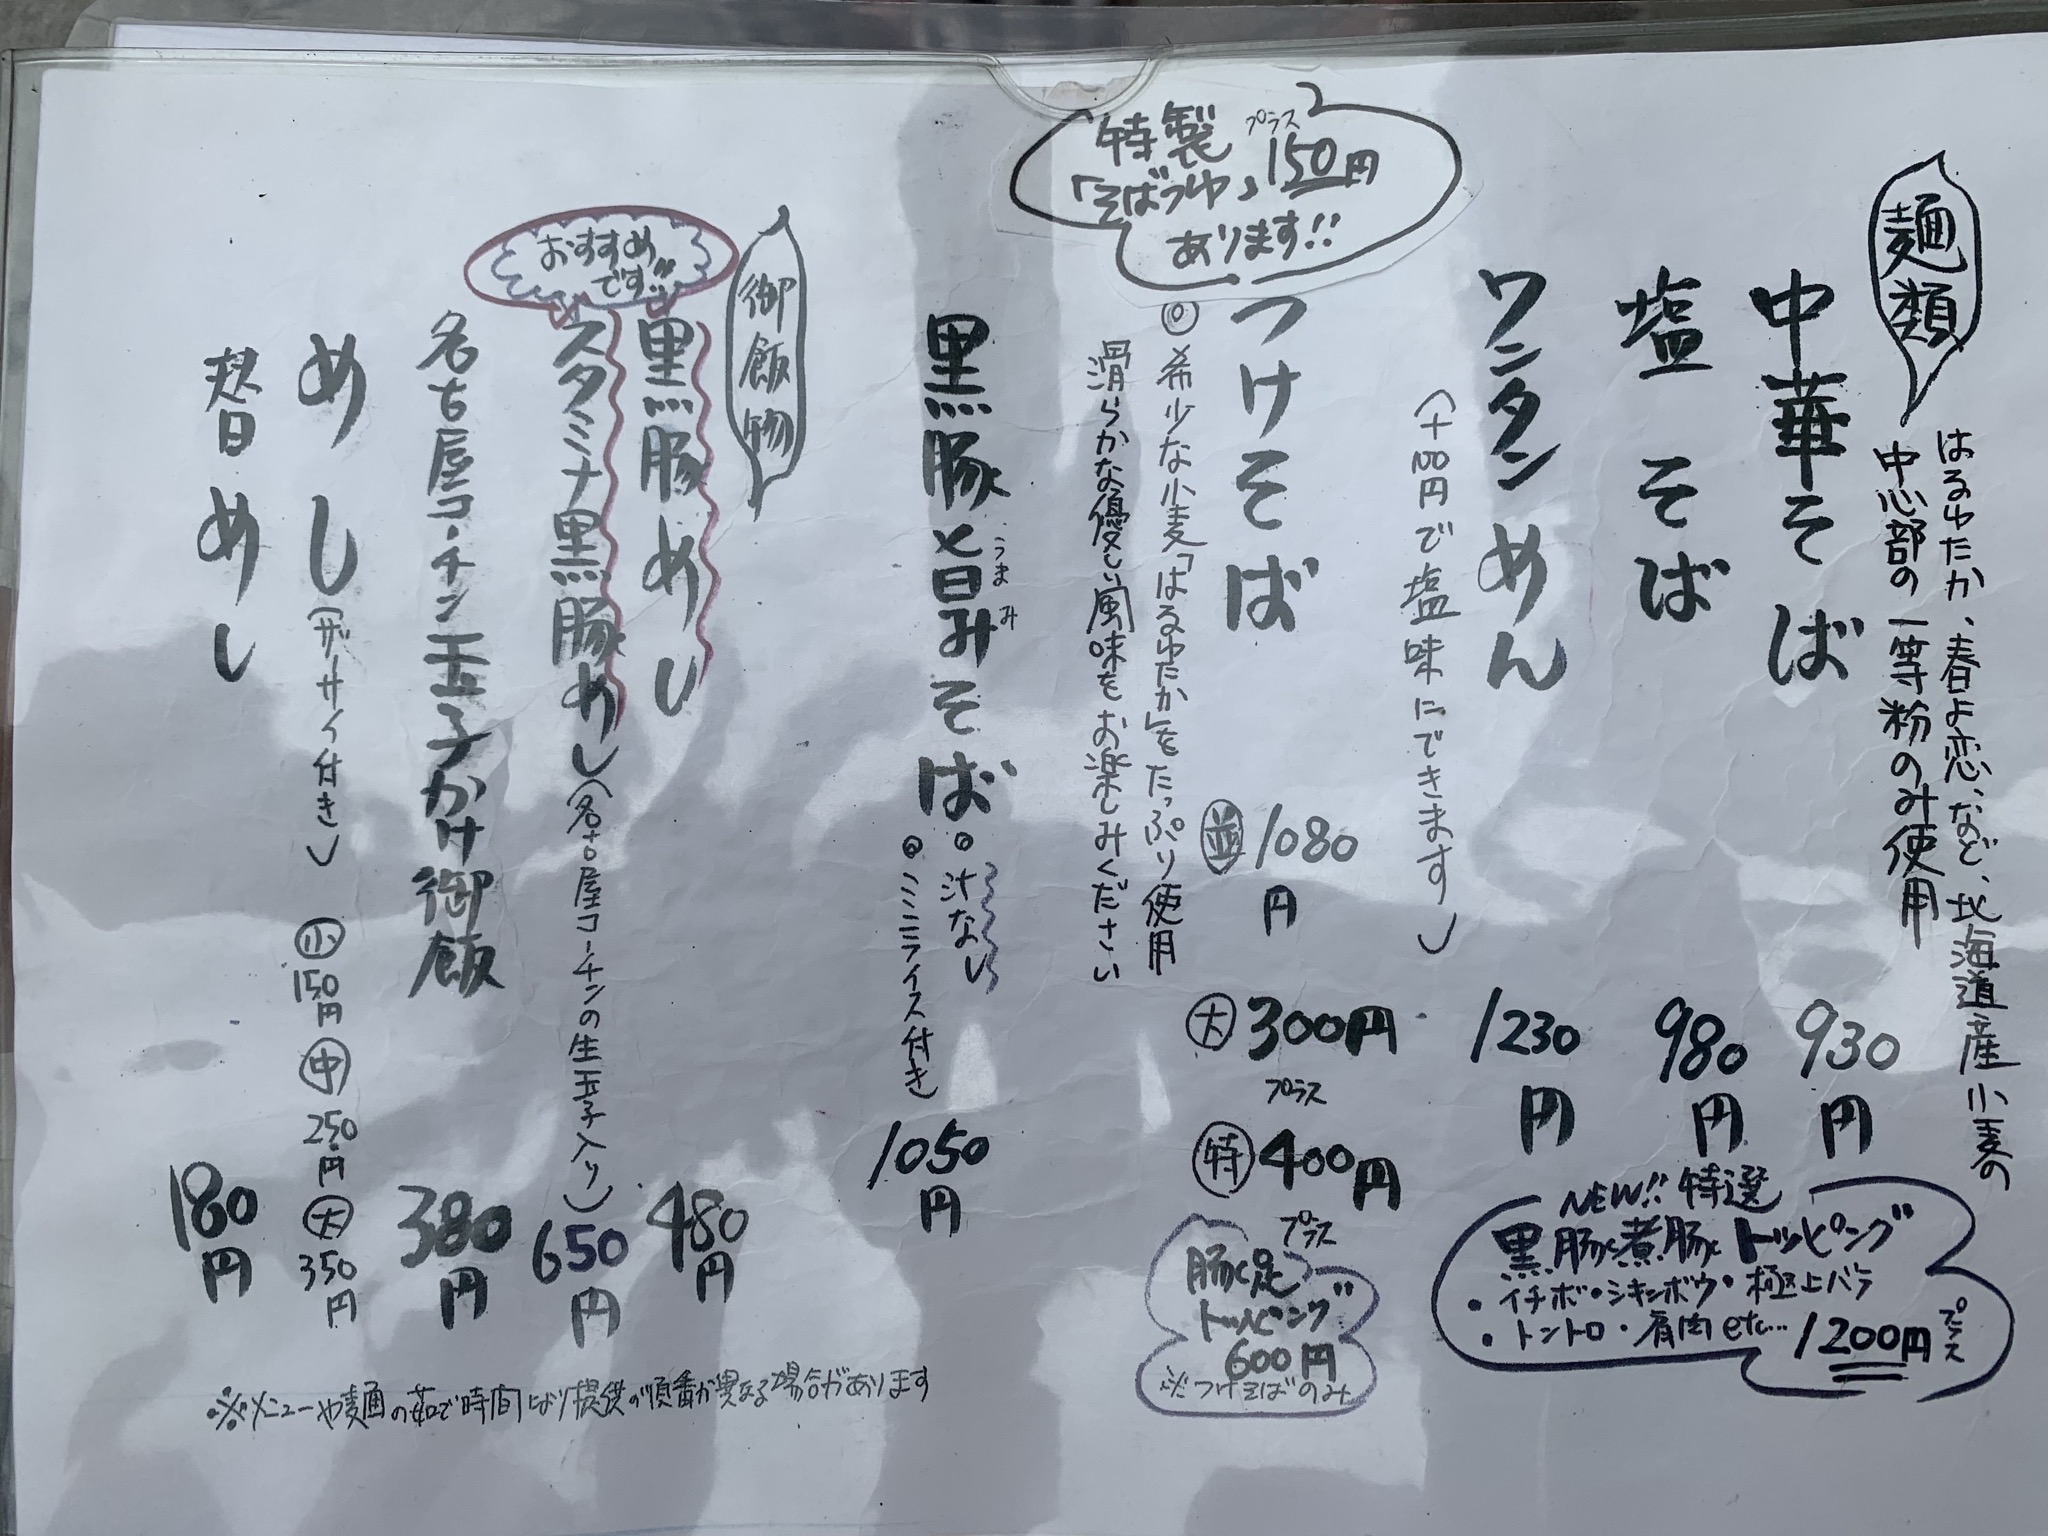 麺類
はるゆたか、春よ恋、など、北海道産小麦の
中心部の一等粉のみ使用
中華そば 930円
塩そば 980円
ワンタンめん 1230円
(+100円で塩味にできます)
NEW!! 特選
黒豚煮豚トッピング
・イチボ・シキンボウ・極上バラ
・トントロ・肩肉etc...
プラス1200円
特製
「そばつゆ」プラス150円
あります!!
つけそば 並1080円
大300円プラス
特400円プラス
◎希少な小麦「はるゆたか」をたっぷり使用
滑らかな優しい風味をお楽しみください
豚足
トッピング
600円
※つけそばのみ
黒豚と旨みそば 1050円
うまみ
◎汁なし
◎ミニライス付き
御飯物
おすすめ
です!!
黒豚めし 480円
スタミナ黒豚めし(名古屋コーチンの生玉子入り) 650円
名古屋コーチン玉子かけ御飯 380円
めし(ザーサイ付き) 小150円 中250円 大350円
替めし 180円
※メニューや麺の茹で時間により提供の順番が異なる場合があります